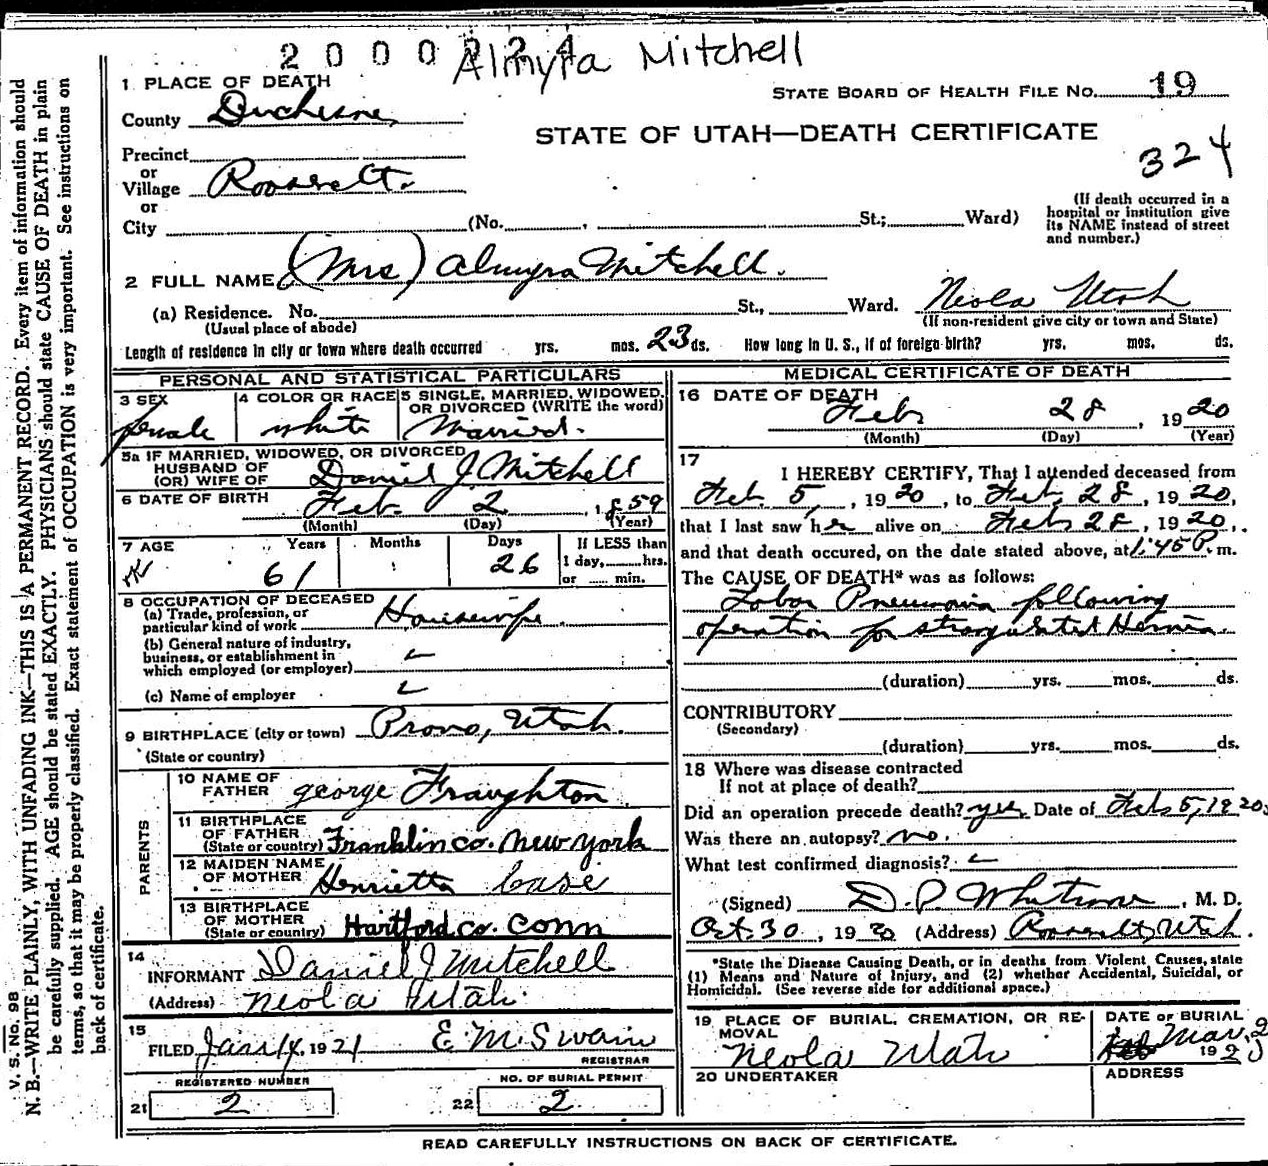 2000224
Almyra Mitchell
1 PLACE OF DEATH
STATE BOARD OF HEALTH FILE NO. 19
County Duchesne
STATE OF UTAH—DEATH CERTIFICATE
324
Precinct
or
Village Roosevelt.
or
City (No. , St.; Ward)
(If death occurred in a hospital or institution give its NAME instead of street and number.)
2 FULL NAME (Mrs) Almyra Mitchell.
(a) Residence. No. St., Ward. Neola Utah
(Usual place of abode) (If non-resident give city or town and State)
Length of residence in city or town where death occurred yrs. mos. 23 ds. How long in U. S., if of foreign birth? yrs. mos. ds.
PERSONAL AND STATISTICAL PARTICULARS
3 SEX female
4 COLOR OR RACE white
5 SINGLE, MARRIED, WIDOWED, OR DIVORCED (WRITE the word) Married.
5a IF MARRIED, WIDOWED, OR DIVORCED
HUSBAND OF
(OR) WIFE OF Daniel J Mitchell
6 DATE OF BIRTH Feb. 2, 1859
(Month) (Day) (Year)
7 AGE Years Months Days If LESS than
61 26 1 day, hrs.
or min.
8 OCCUPATION OF DECEASED
(a) Trade, profession, or
particular kind of work Housewife.
(b) General nature of industry,
business, or establishment in
which employed (or employer)
(c) Name of employer
9 BIRTHPLACE (city or town) Provo, Utah.
(State or country)
PARENTS
10 NAME OF
FATHER george Fraughton
11 BIRTHPLACE
OF FATHER
(State or country) Franklin co. New york
12 MAIDEN NAME
OF MOTHER Henrietta Case
13 BIRTHPLACE
OF MOTHER
(State or country) Hartford co. Conn
14
INFORMANT Daniel J Mitchell
(Address) Neola Utah.
15
FILED Jan 14, 1921 E M Swain
REGISTRAR
REGISTERED NUMBER NO. OF BURIAL PERMIT
21 2 22 2
MEDICAL CERTIFICATE OF DEATH
16 DATE OF DEATH Feb 28, 1920
(Month) (Day) (Year)
17
I HEREBY CERTIFY, That I attended deceased from
Feb. 5, 1920, to Feb. 28, 1920,
that I last saw her alive on Feb 28, 1920,
and that death occured, on the date stated above, at 1:45 P. m.
The CAUSE OF DEATH* was as follows:
Lobar Pneumonia following
operation for strangulated Hernia.
(duration) yrs. mos. ds.
CONTRIBUTORY
(Secondary)
(duration) yrs. mos. ds.
18 Where was disease contracted
If not at place of death?
Did an operation precede death? yes Date of Feb 5, 1920
Was there an autopsy? no.
What test confirmed diagnosis?
(Signed) D. P. Whitmore, M. D.
Oct. 30, 1920 (Address) Roosevelt, Utah.
*State the Disease Causing Death, or in deaths from Violent Causes, state
(1) Means and Nature of Injury, and (2) whether Accidental, Suicidal, or
Homicidal. (See reverse side for additional space.)
19 PLACE OF BURIAL, CREMATION, OR RE-
MOVAL
Neola Utah
DATE OF BURIAL
Mar. 2
19
20 UNDERTAKER ADDRESS
READ CAREFULLY INSTRUCTIONS ON BACK OF CERTIFICATE.
V. S. No. 98
N. B.—WRITE PLAINLY, WITH UNFADING INK—THIS IS A PERMANENT RECORD. Every item of information should
be carefully supplied. AGE should be stated EXACTLY. PHYSICIANS should state CAUSE OF DEATH in plain
terms, so that it may be properly classified. Exact statement of OCCUPATION is very important. See instructions on
back of certificate.